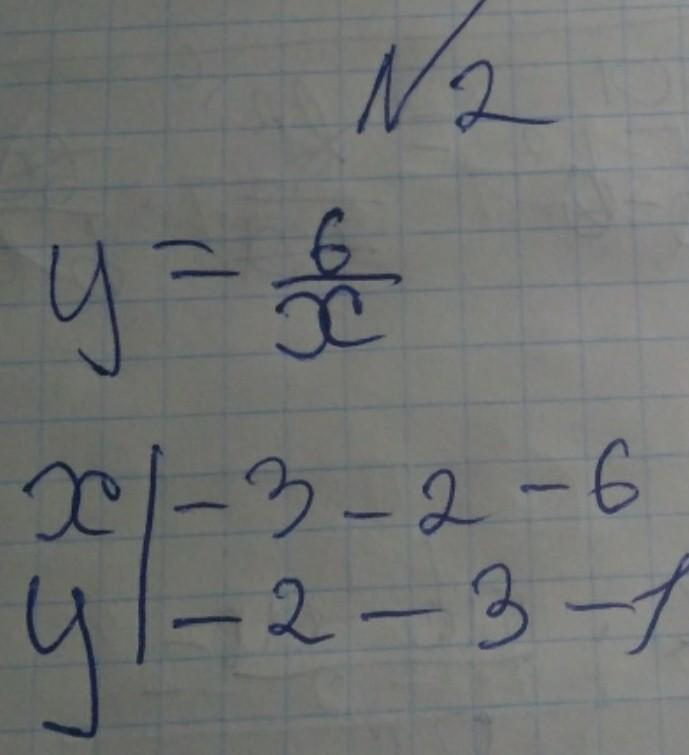 N 2
y = 6/x
x | -3 -2 -6
y | -2 -3 -1